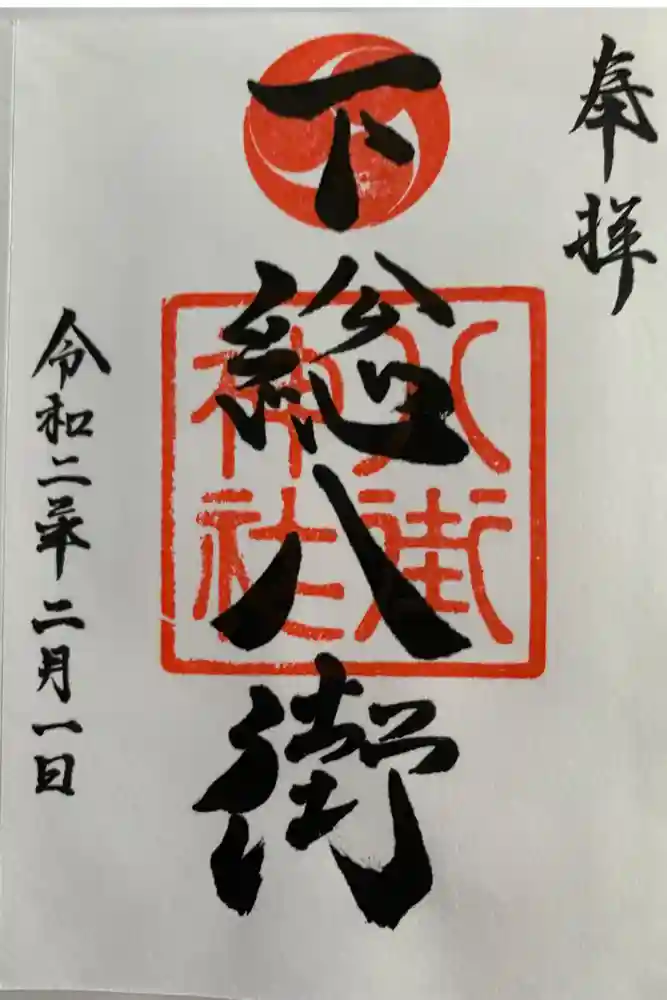 奉拝
下総八街
八街
神社
令和二年二月一日